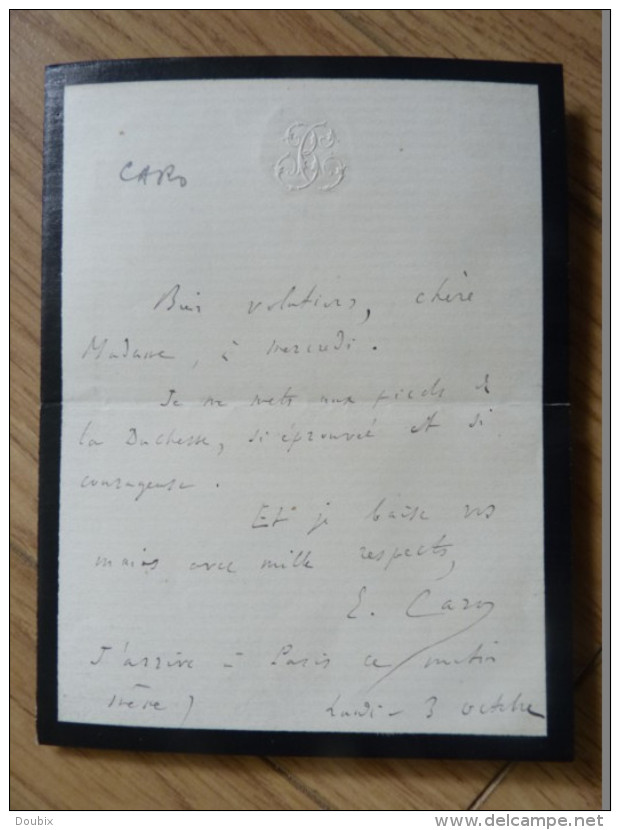 CARO
Bien volontiers, chère
Madame, à mercredi.
Je me mets aux pieds de
la Duchesse, si éprouvée et si
courageuse.
Et je baise vos
mains avec mille respects,
E. Caro
J'arrive à Paris ce matin
même)
Lundi - 3 octobre
Doubix
www.delcampe.net